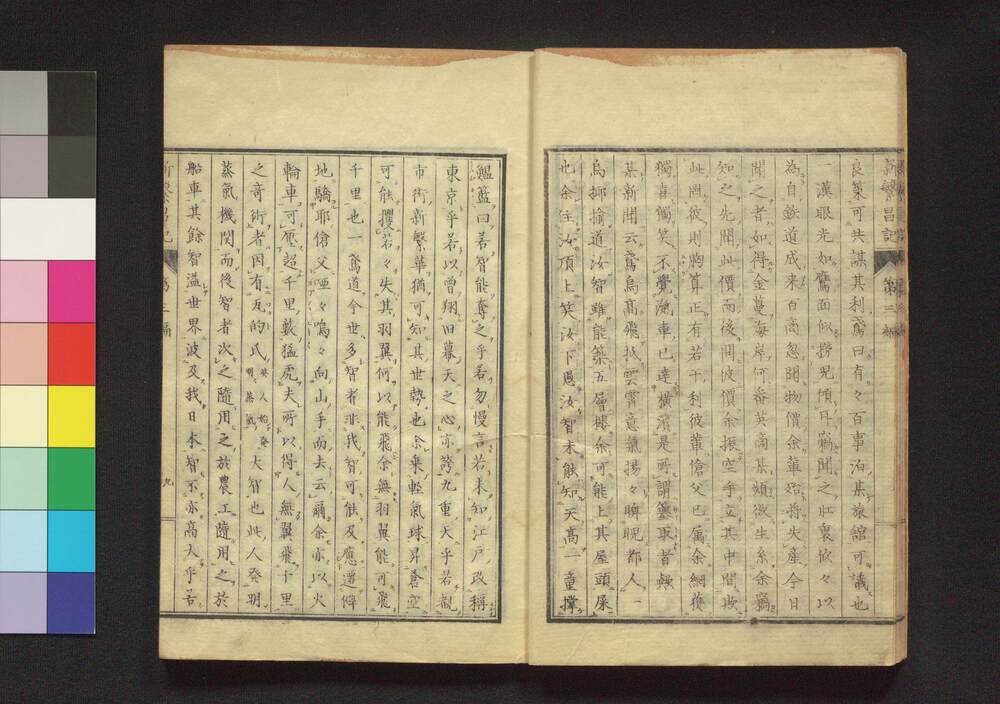 新繁昌記 第三編
良策可共謀其利鳶曰有々百事泊某旅館可議也
一漢眼光如鷹面似 児傾耳竊聞之肚裏依々以
為自鉄道成来百高忽 物價余輩殆将失産今日
聞之者如得金蔓海岸何番英商某頻徴生糸余竊
知之先聞此價而後聞彼價余振空手立其中間攻
此罔彼則胸算正有若干利彼輩傖父已属余網獲
獨喜獨笑不覺滊車已達横濱是所謂 取者類
某新聞云鳶烏高飛抵雲霄意氣揚々睥睨都人一
烏揶揄道汝智雖能築五層樓余可能上其屋頭屎
也余在汝頂上笑汝下愚汝智未能知天高一童撑
籃曰若智能奪之乎若勿慢言若未知江戸改稱
東京乎若以曽翔旧暮天之心亦誇九重天乎若観
市街新繁華猶可知其世勢也余乗軽氣球昇蒼空
可能攫若々失其羽翼何以能飛余無羽翼能可飛
千里也一鳶道今世多智者非我智可能及應還僻
地驕耶傖父唖々鳴々向山手而去云爾余亦以火
輪車可応超千里藪猛虎夫所以得人無翼飛千里
之奇術者因有瓦的氏英人始發明蒸氣大智也此人発明
蒸氣機関而後智者次之隨用之於農工隨用之於
船車其餘智溢世界波及我日本智不亦高大乎若
新繁昌記 第三編 九